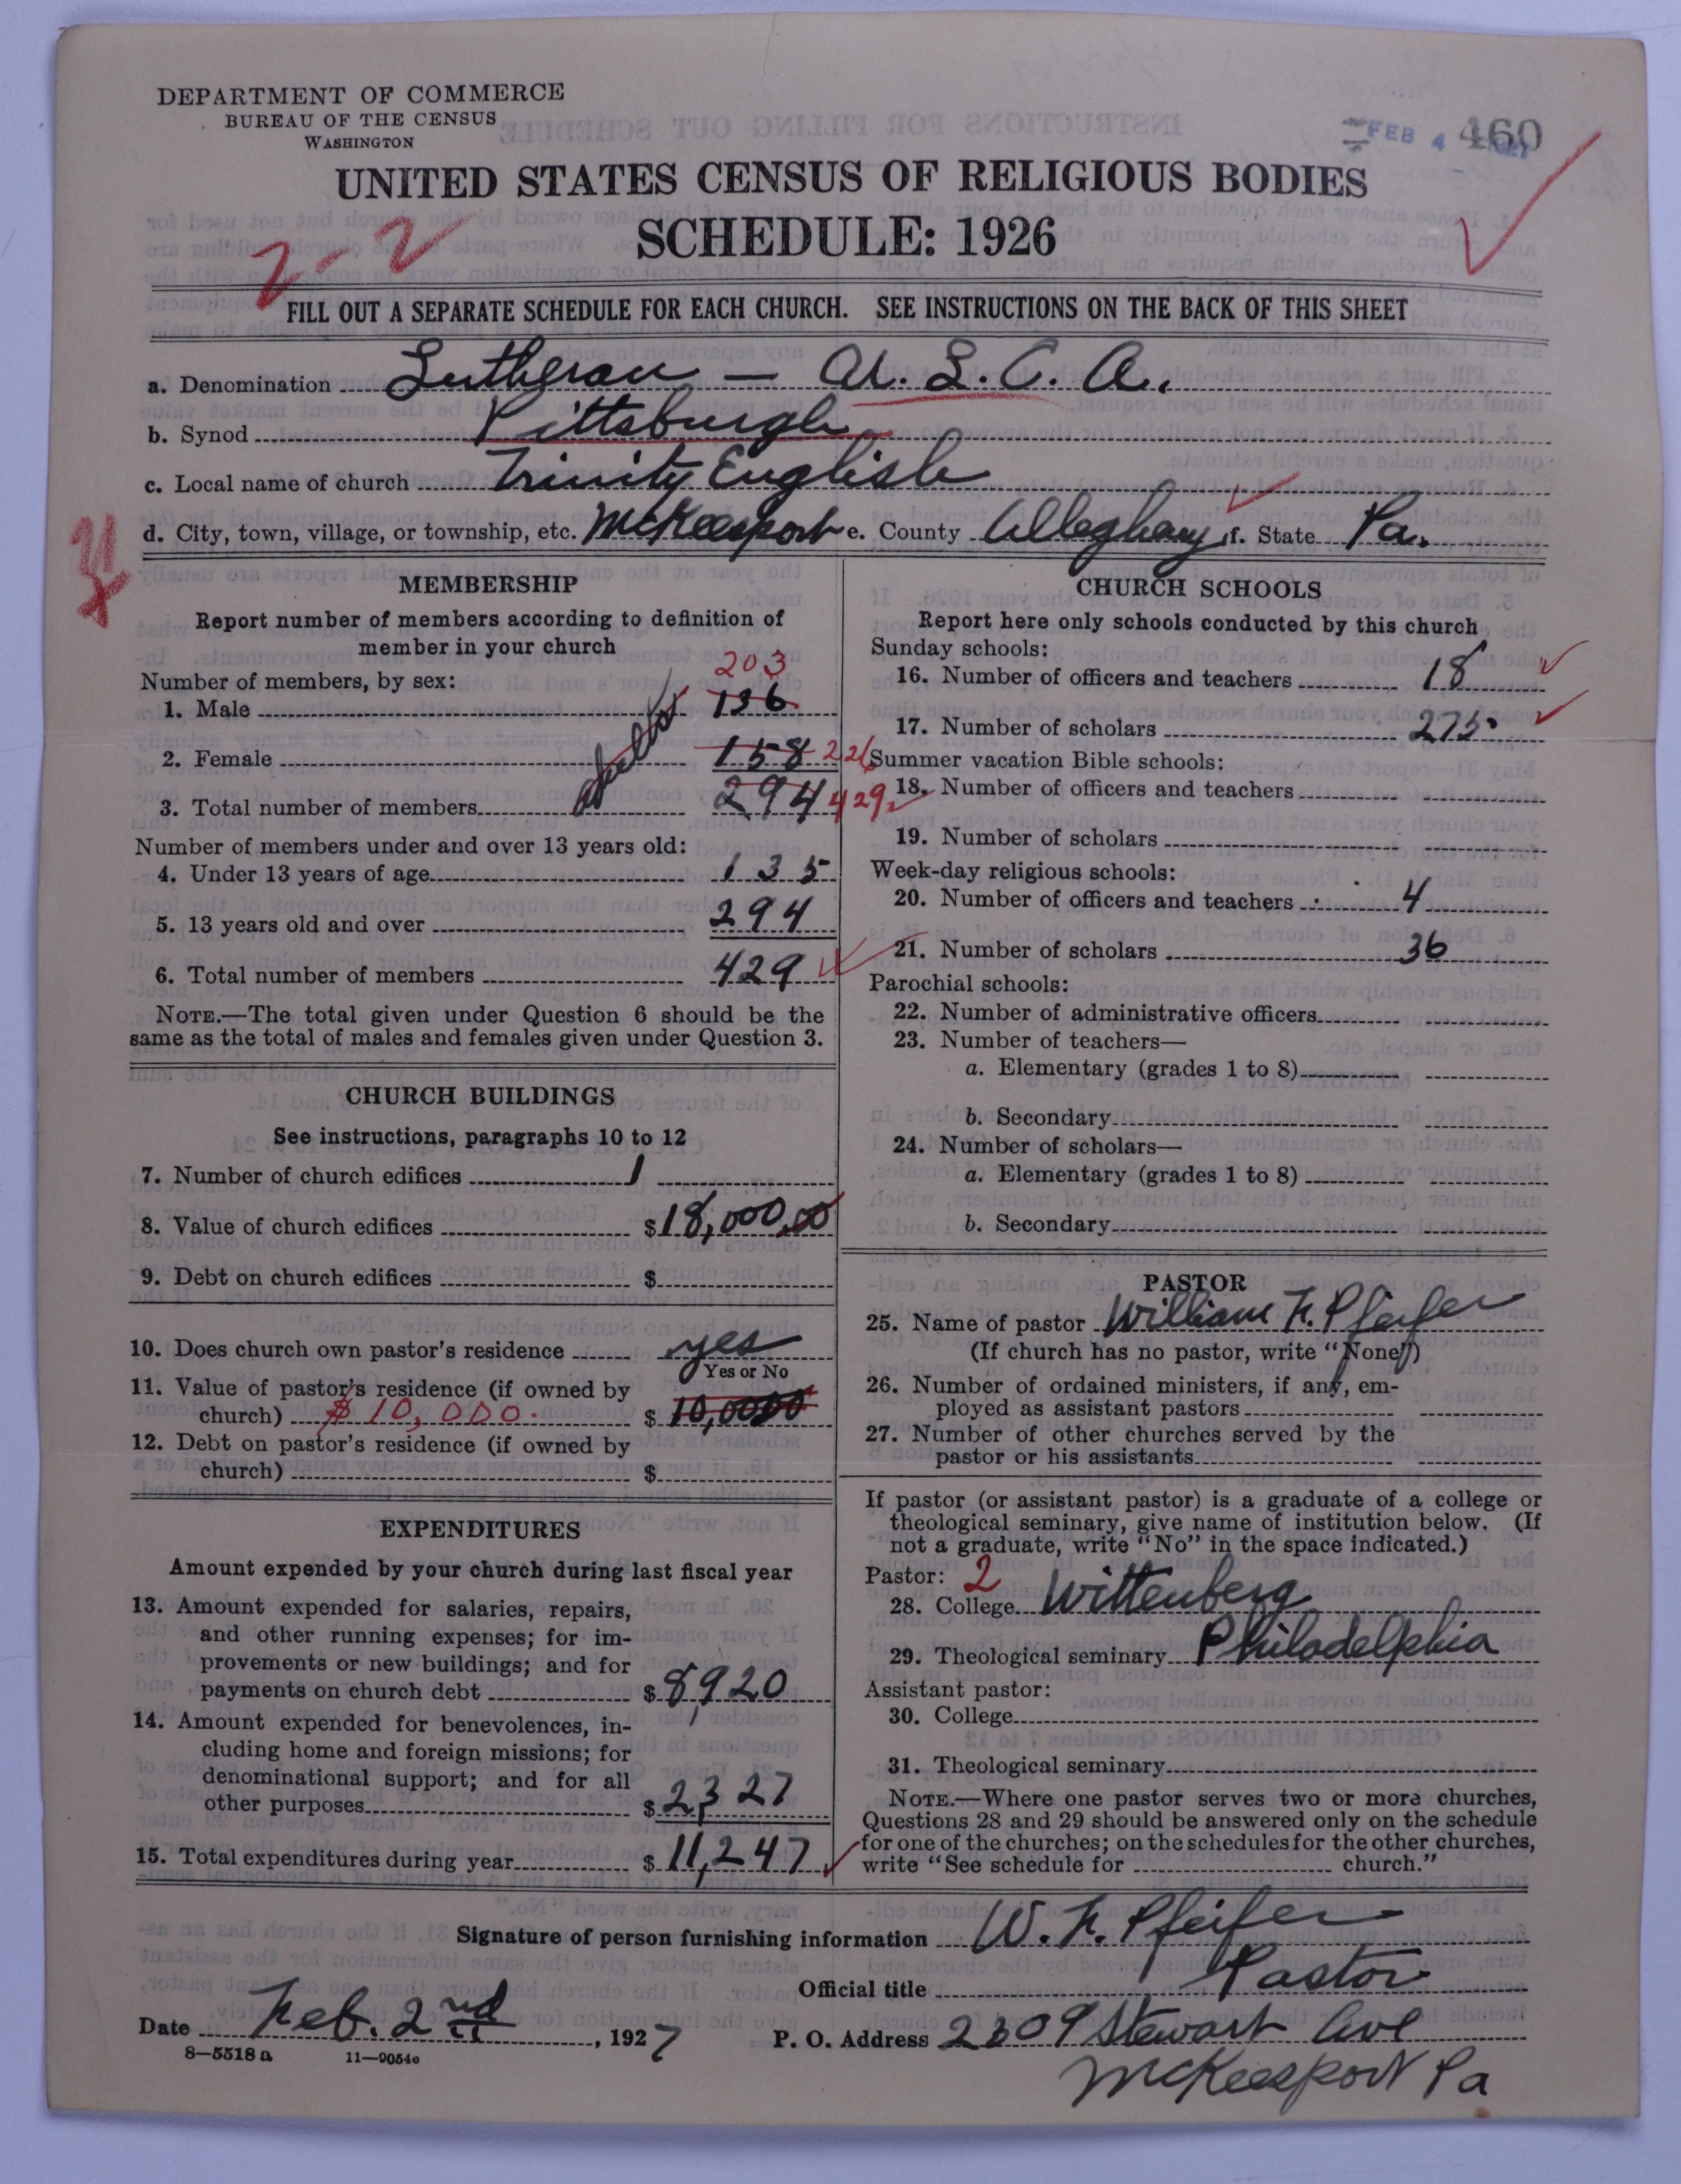 DEPARTMENT OF COMMERCE
BUREAU OF THE CENSUS
WASHINGTON
FEB 4
460
UNITED STATES CENSUS OF RELIGIOUS BODIES
SCHEDULE: 1926
2-2
FILL OUT A SEPARATE SCHEDULE FOR EACH CHURCH. SEE INSTRUCTIONS ON THE BACK OF THIS SHEET
a. Denomination Lutheran — U. L. C. A.
b. Synod Pittsburgh
c. Local name of church Trinity English
d. City, town, village, or township, etc. McKeesport e. County Allegheny f. State Pa.
MEMBERSHIP
Report number of members according to definition of
member in your church
Number of members, by sex:
203
1. Male 136
adults
2. Female 158 226
3. Total number of members 294 429
Number of members under and over 13 years old:
4. Under 13 years of age 135
5. 13 years old and over 294
6. Total number of members 429
NOTE.—The total given under Question 6 should be the
same as the total of males and females given under Question 3.
CHURCH BUILDINGS
See instructions, paragraphs 10 to 12
7. Number of church edifices 1
8. Value of church edifices $18,000.00
9. Debt on church edifices $
10. Does church own pastor's residence yes
Yes or No
11. Value of pastor's residence (if owned by
church) $10,000. $ 10,0000
12. Debt on pastor's residence (if owned by
church) $
EXPENDITURES
Amount expended by your church during last fiscal year
13. Amount expended for salaries, repairs,
and other running expenses; for im-
provements or new buildings; and for
payments on church debt $ 8,920
14. Amount expended for benevolences, in-
cluding home and foreign missions; for
denominational support; and for all
other purposes $ 2,327
15. Total expenditures during year $ 11,247
CHURCH SCHOOLS
Report here only schools conducted by this church
Sunday schools:
16. Number of officers and teachers 18
17. Number of scholars 275
Summer vacation Bible schools:
18. Number of officers and teachers
19. Number of scholars
Week-day religious schools:
20. Number of officers and teachers 4
21. Number of scholars 36
Parochial schools:
22. Number of administrative officers
23. Number of teachers—
a. Elementary (grades 1 to 8)
b. Secondary
24. Number of scholars—
a. Elementary (grades 1 to 8)
b. Secondary
PASTOR
25. Name of pastor William F. Pfeifer
(If church has no pastor, write "None")
26. Number of ordained ministers, if any, em-
ployed as assistant pastors
27. Number of other churches served by the
pastor or his assistants
If pastor (or assistant pastor) is a graduate of a college or
theological seminary, give name of institution below. (If
not a graduate, write "No" in the space indicated.)
Pastor: 2
28. College Wittenberg
29. Theological seminary Philadelphia
Assistant pastor:
30. College
31. Theological seminary
NOTE.—Where one pastor serves two or more churches,
Questions 28 and 29 should be answered only on the schedule
for one of the churches; on the schedules for the other churches,
write "See schedule for church."
Signature of person furnishing information W. F. Pfeifer
Official title Pastor
Date Feb. 2nd, 1927 P. O. Address 2309 Stewart Ave
McKeesport Pa
8—5518 a 11—9054e